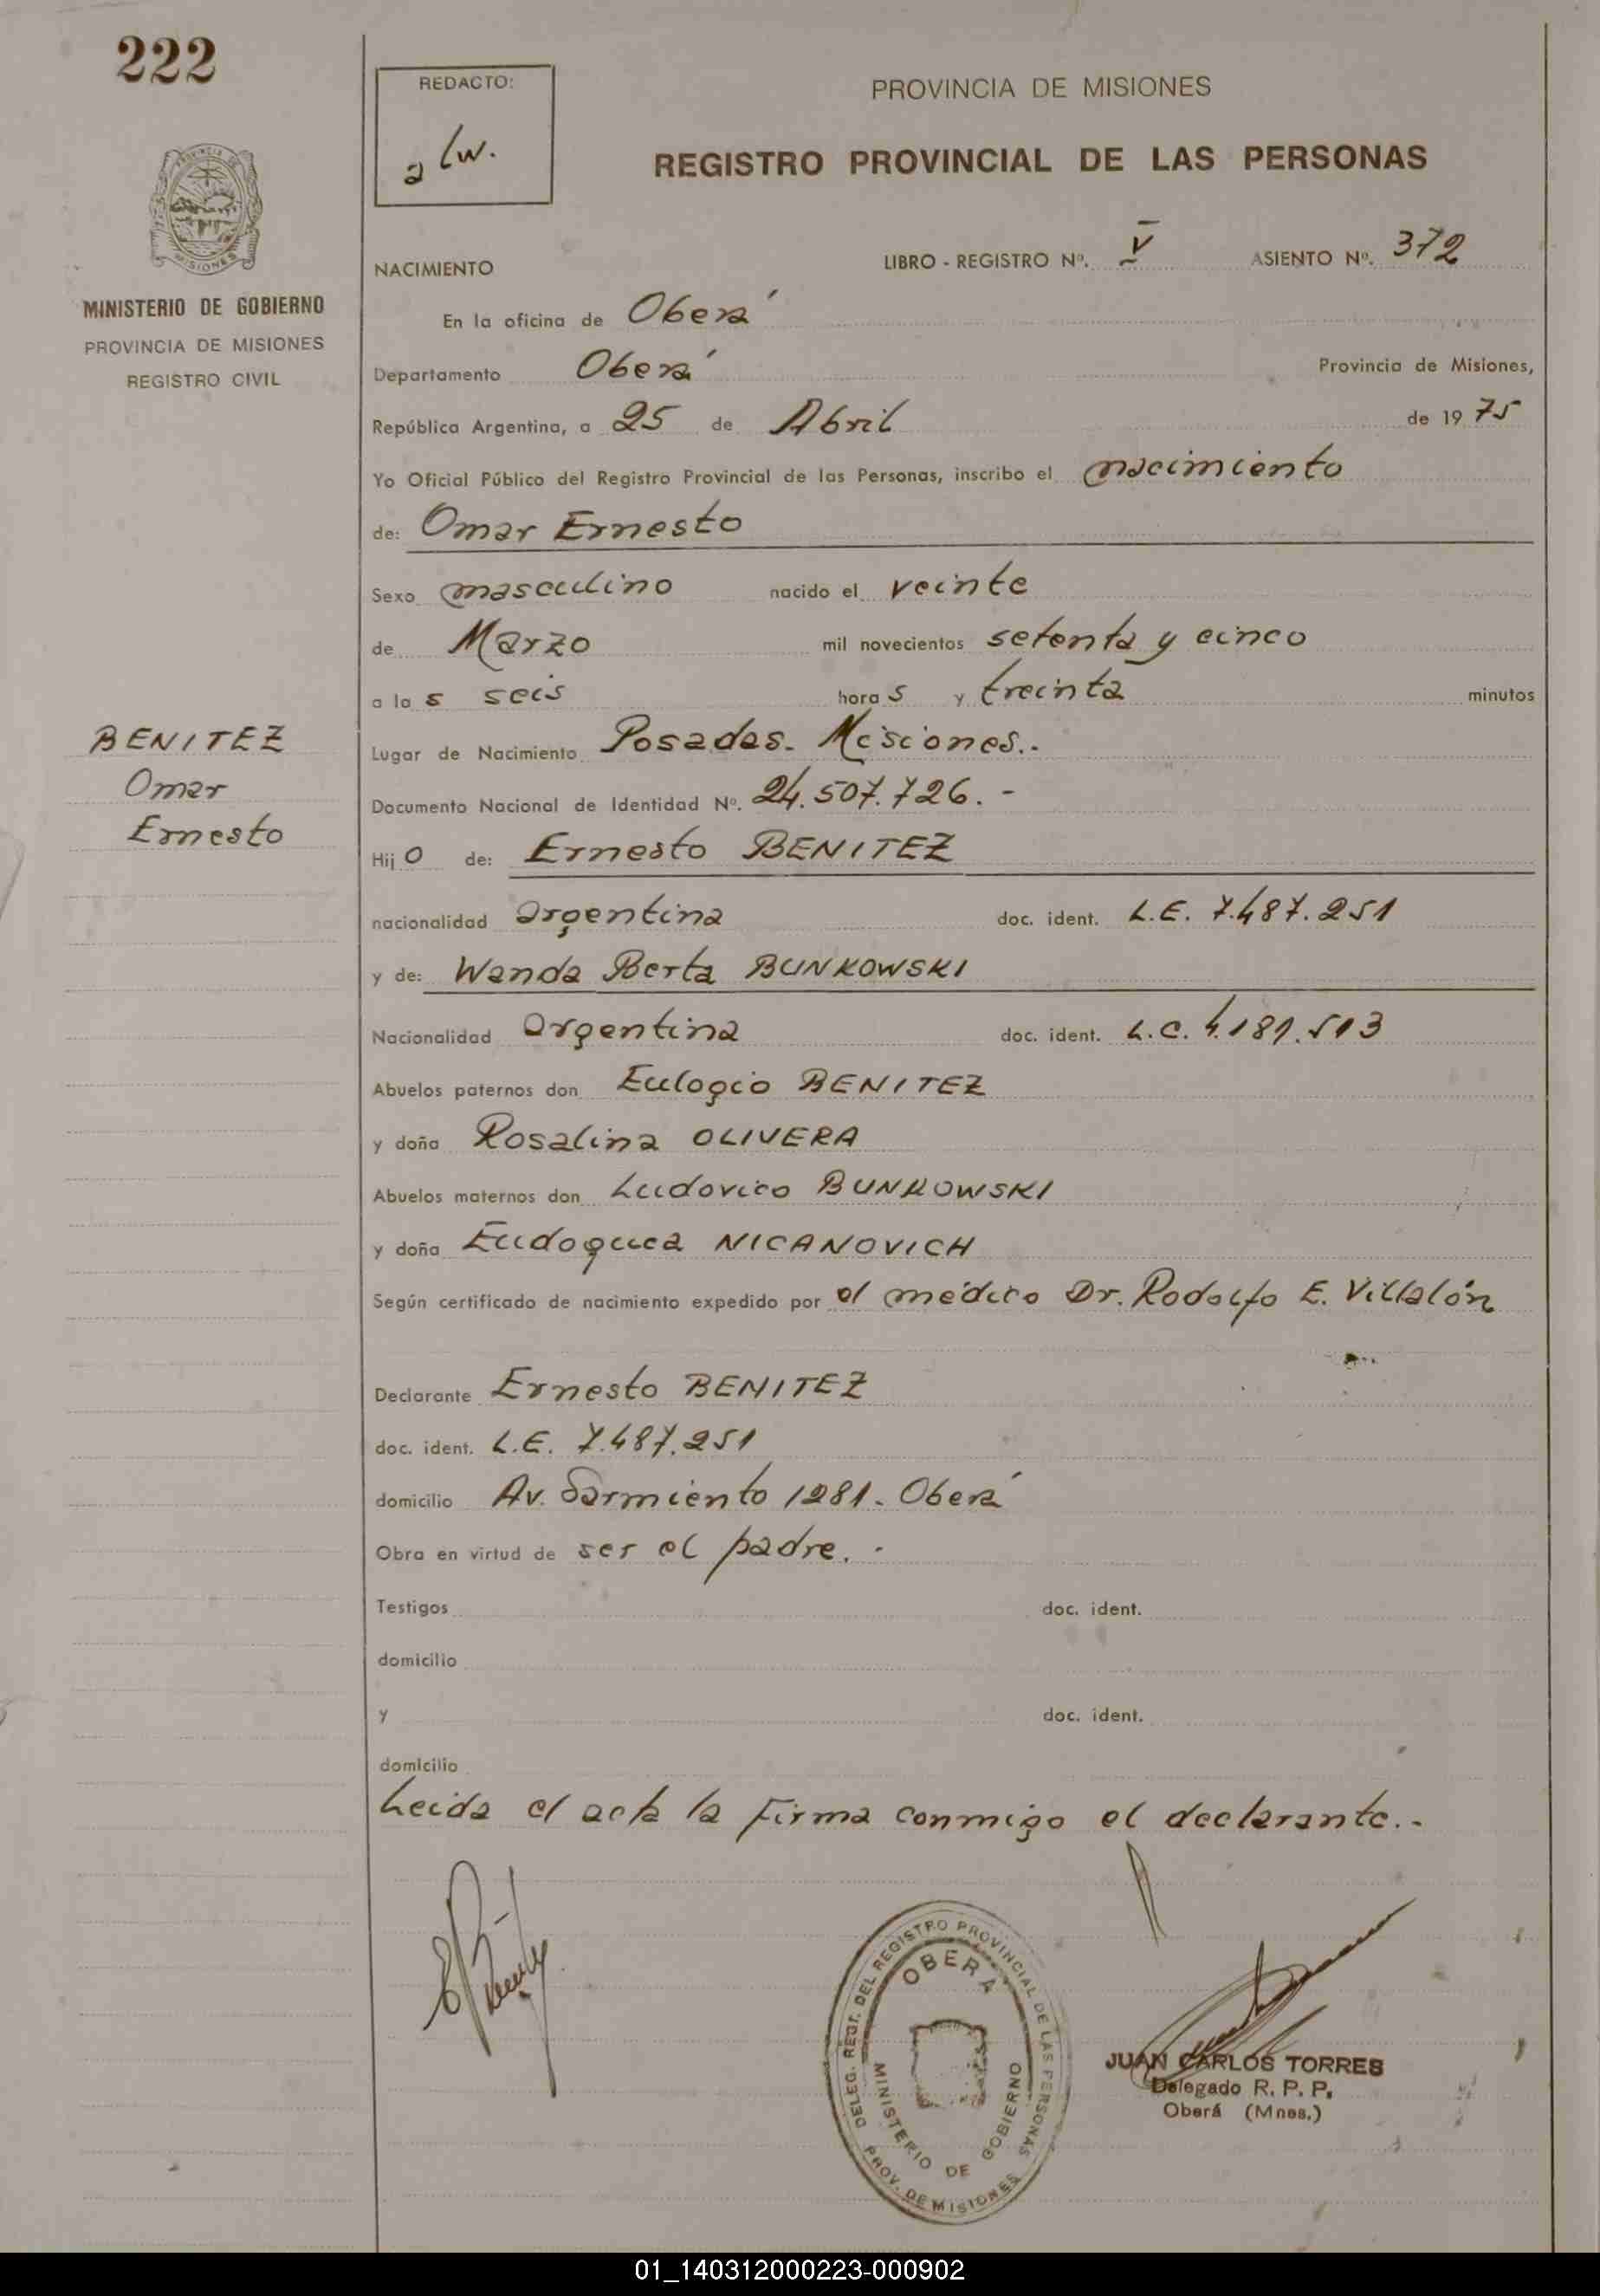 222
REDACTO:
a lw.
PROVINCIA DE MISIONES
REGISTRO PROVINCIAL DE LAS PERSONAS
PROVINCIA DE
MISIONES
MINISTERIO DE GOBIERNO
PROVINCIA DE MISIONES
REGISTRO CIVIL
NACIMIENTO LIBRO - REGISTRO Nº. V ASIENTO Nº. 372
En la oficina de Oberá
Departamento Oberá Provincia de Misiones,
República Argentina, a 25 de Abril de 1975
Yo Oficial Público del Registro Provincial de las Personas, inscribo el nacimiento
de: Omar Ernesto
Sexo masculino nacido el veinte
de Marzo mil novecientos setenta y cinco
a las seis horas y treinta minutos
BENITEZ
Omar
Ernesto
Lugar de Nacimiento Posadas. Misiones.-
Documento Nacional de Identidad Nº. 24.507.726.-
Hijo de: Ernesto BENITEZ
nacionalidad argentina doc. ident. L.E. 7.487.251
y de: Wanda Berta BUNKOWSKI
Nacionalidad argentina doc. ident. L.C. 4.181.513
Abuelos paternos don Eulogio BENITEZ
y doña Rosalina OLIVERA
Abuelos maternos don Ludovico BUNKOWSKI
y doña Eudoquca NICANOVICH
Según certificado de nacimiento expedido por el médico Dr. Rodolfo E. Villalón
Declarante Ernesto BENITEZ
doc. ident. L.E. 7.487.251
domicilio Av. Sarmiento 1281. Oberá
Obra en virtud de ser el padre.-
Testigos doc. ident.
domicilio
y doc. ident.
domicilio
Leida el acta la firma conmigo el declarante.-
DELEG. REGT. DEL REGISTRO PROVINCIAL DE LAS PERSONAS
OBERA
MINISTERIO DE GOBIERNO
PROV. DE MISIONES
JUAN CARLOS TORRES
Delegado R. P. P.
Oberá (Mnes.)
01_140312000223-000902